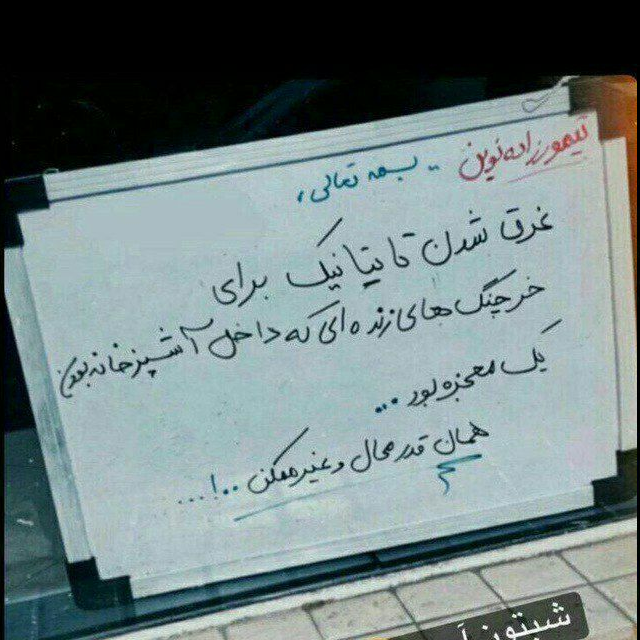 تیمورزاده نوین
بسمه تعالی
غرق شدن تایتانیک برای
خرچنگ های زنده ای که داخل آشپزخانه بودن
یک معجزه بود ...
همان قدر محال و غیر ممکن ..!...
شیتون